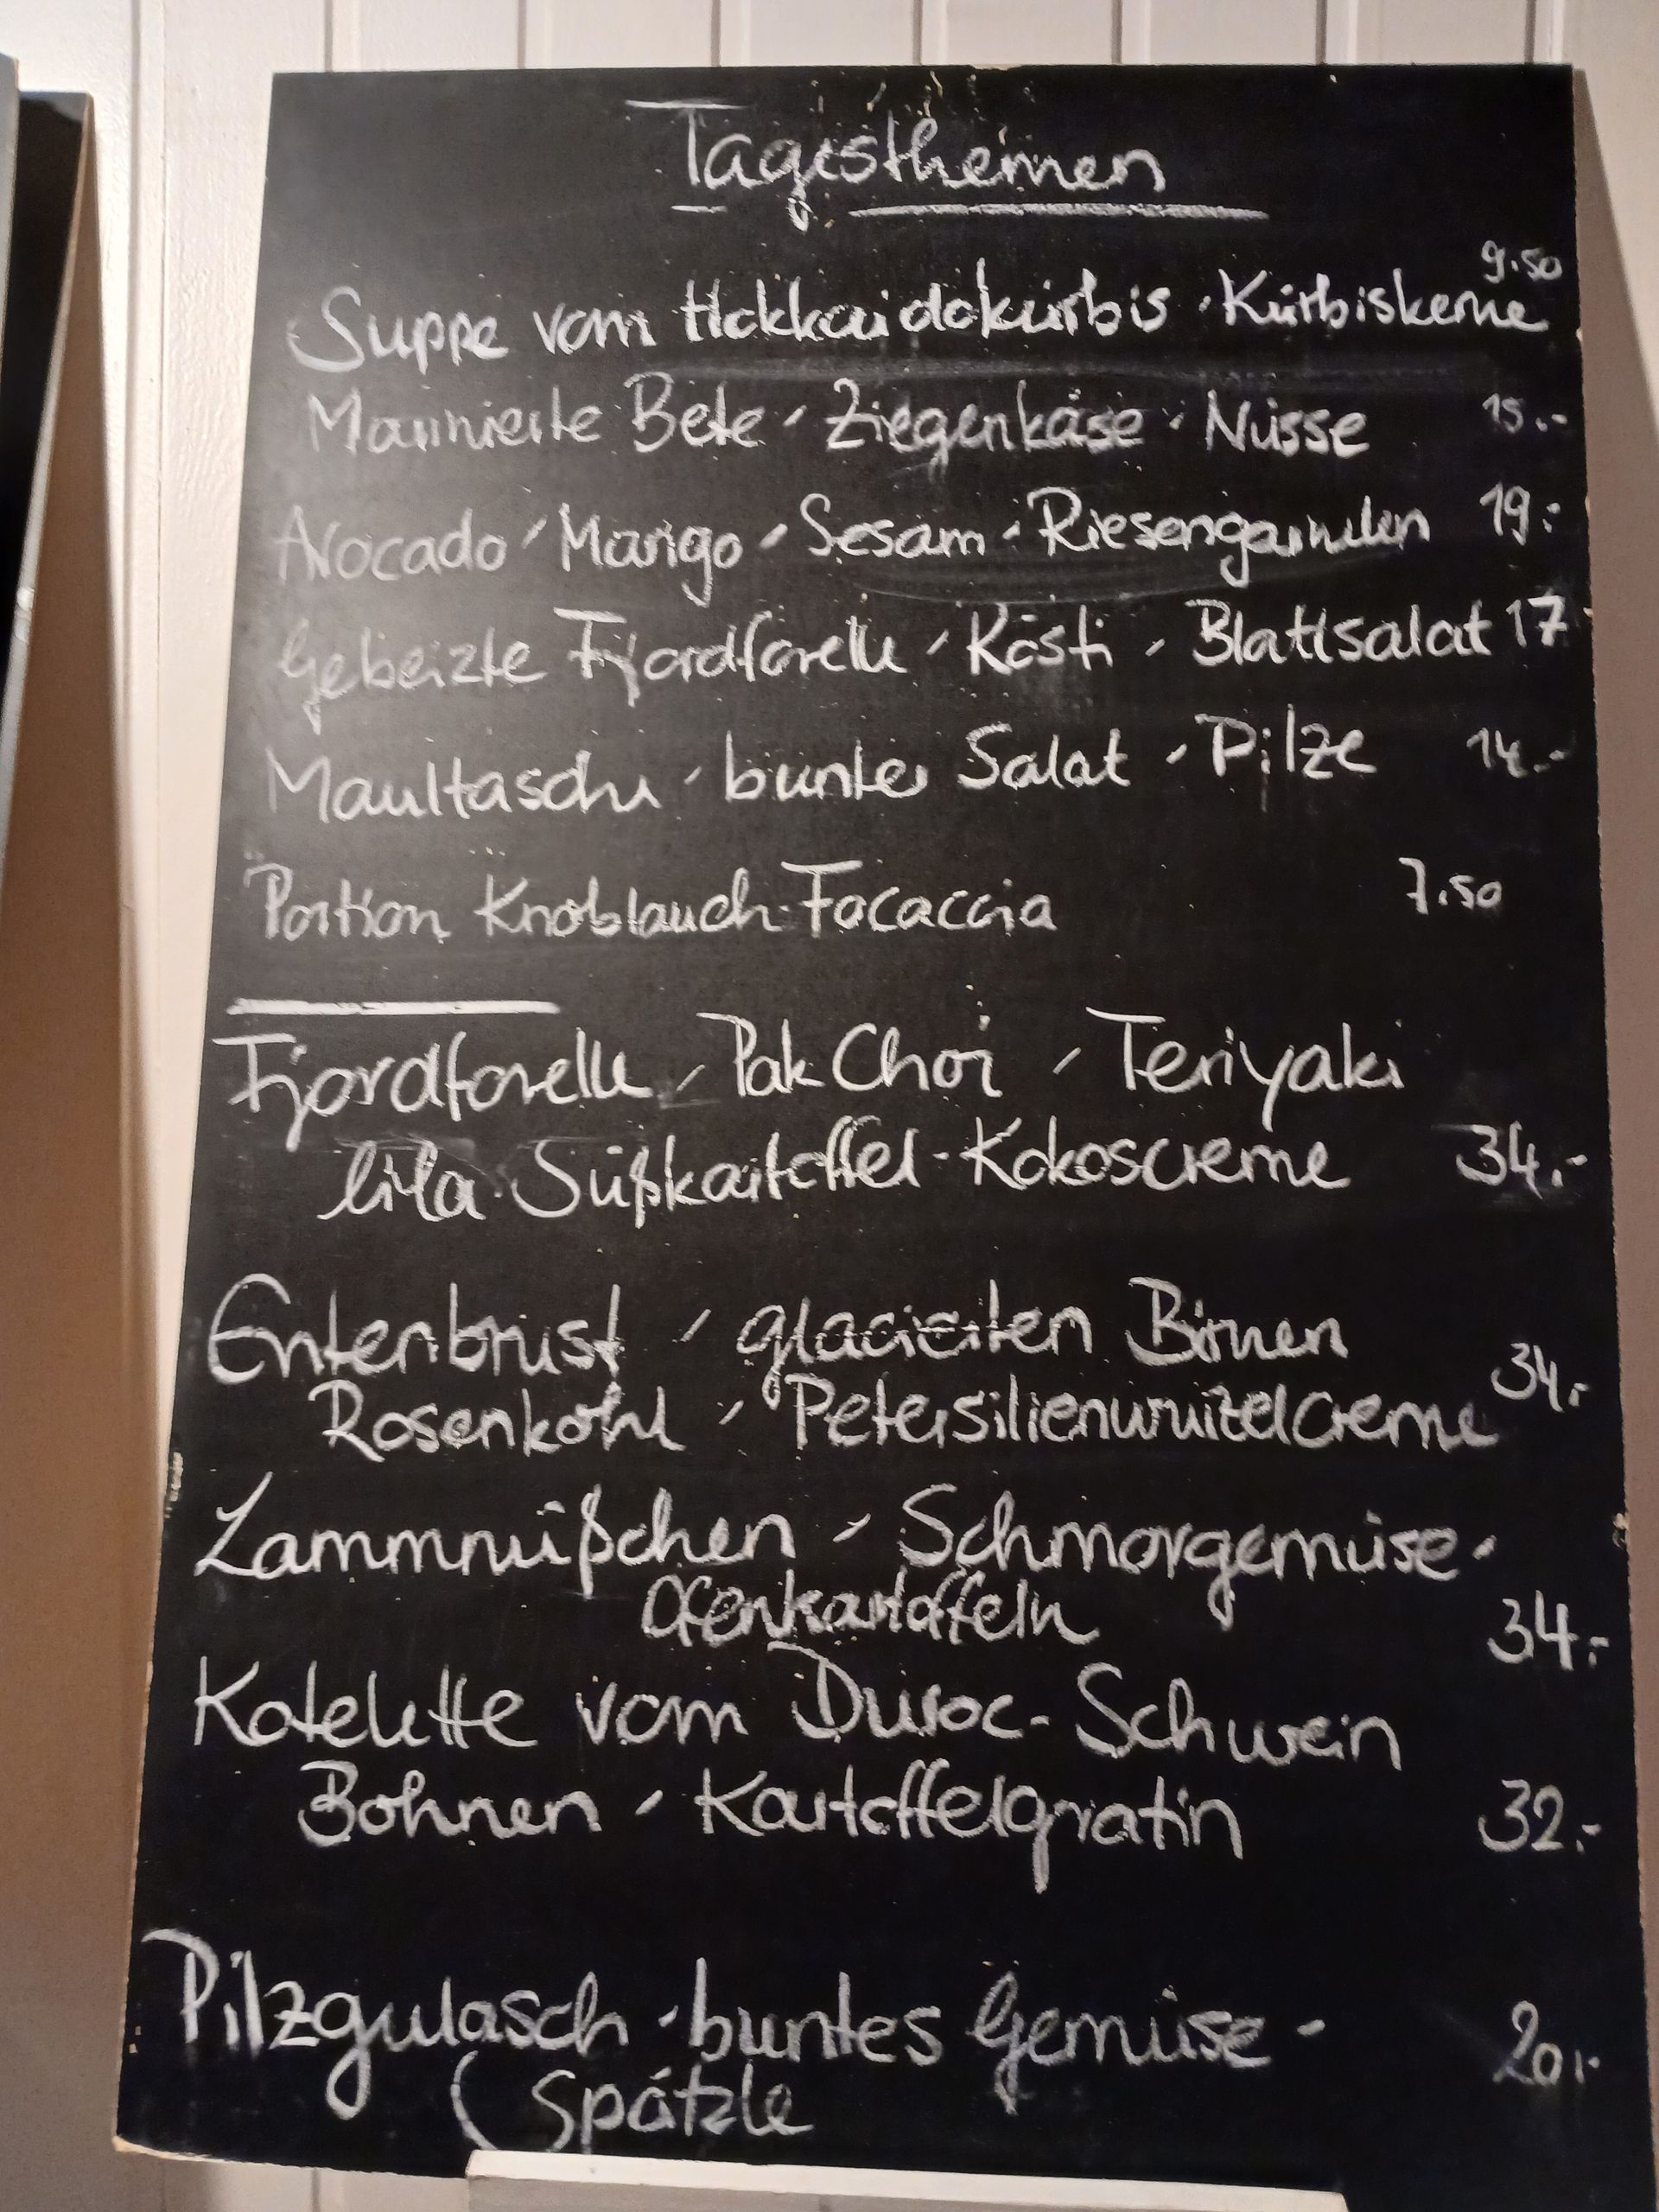 Tagesthemen
9.50
Suppe vom Hokkaidokürbis - Kürbiskerne
Marinierte Bete - Ziegenkäse - Nüsse 15.-
Avocado - Mango - Sesam - Riesengarnelen 19.-
Gebeizte Fjordforelle - Rösti - Blattsalat 17
Maultasche - bunter Salat - Pilze 14.-
Portion Knoblauch-Focaccia 7.50
Fjordforelle - Pak Choi - Teriyaki
lila Süßkartoffel-Kokoscreme 34.-
Entenbrust - glacierten Birnen
Rosenkohl - Petersilienwurzelcreme 34.-
Lammnüßchen - Schmorgemüse -
Ofenkartoffeln 34.-
Kotelette vom Duroc-Schwein
Bohnen - Kartoffelgratin 32.-
Pilzgulasch - buntes Gemüse - 20.-
Spätzle